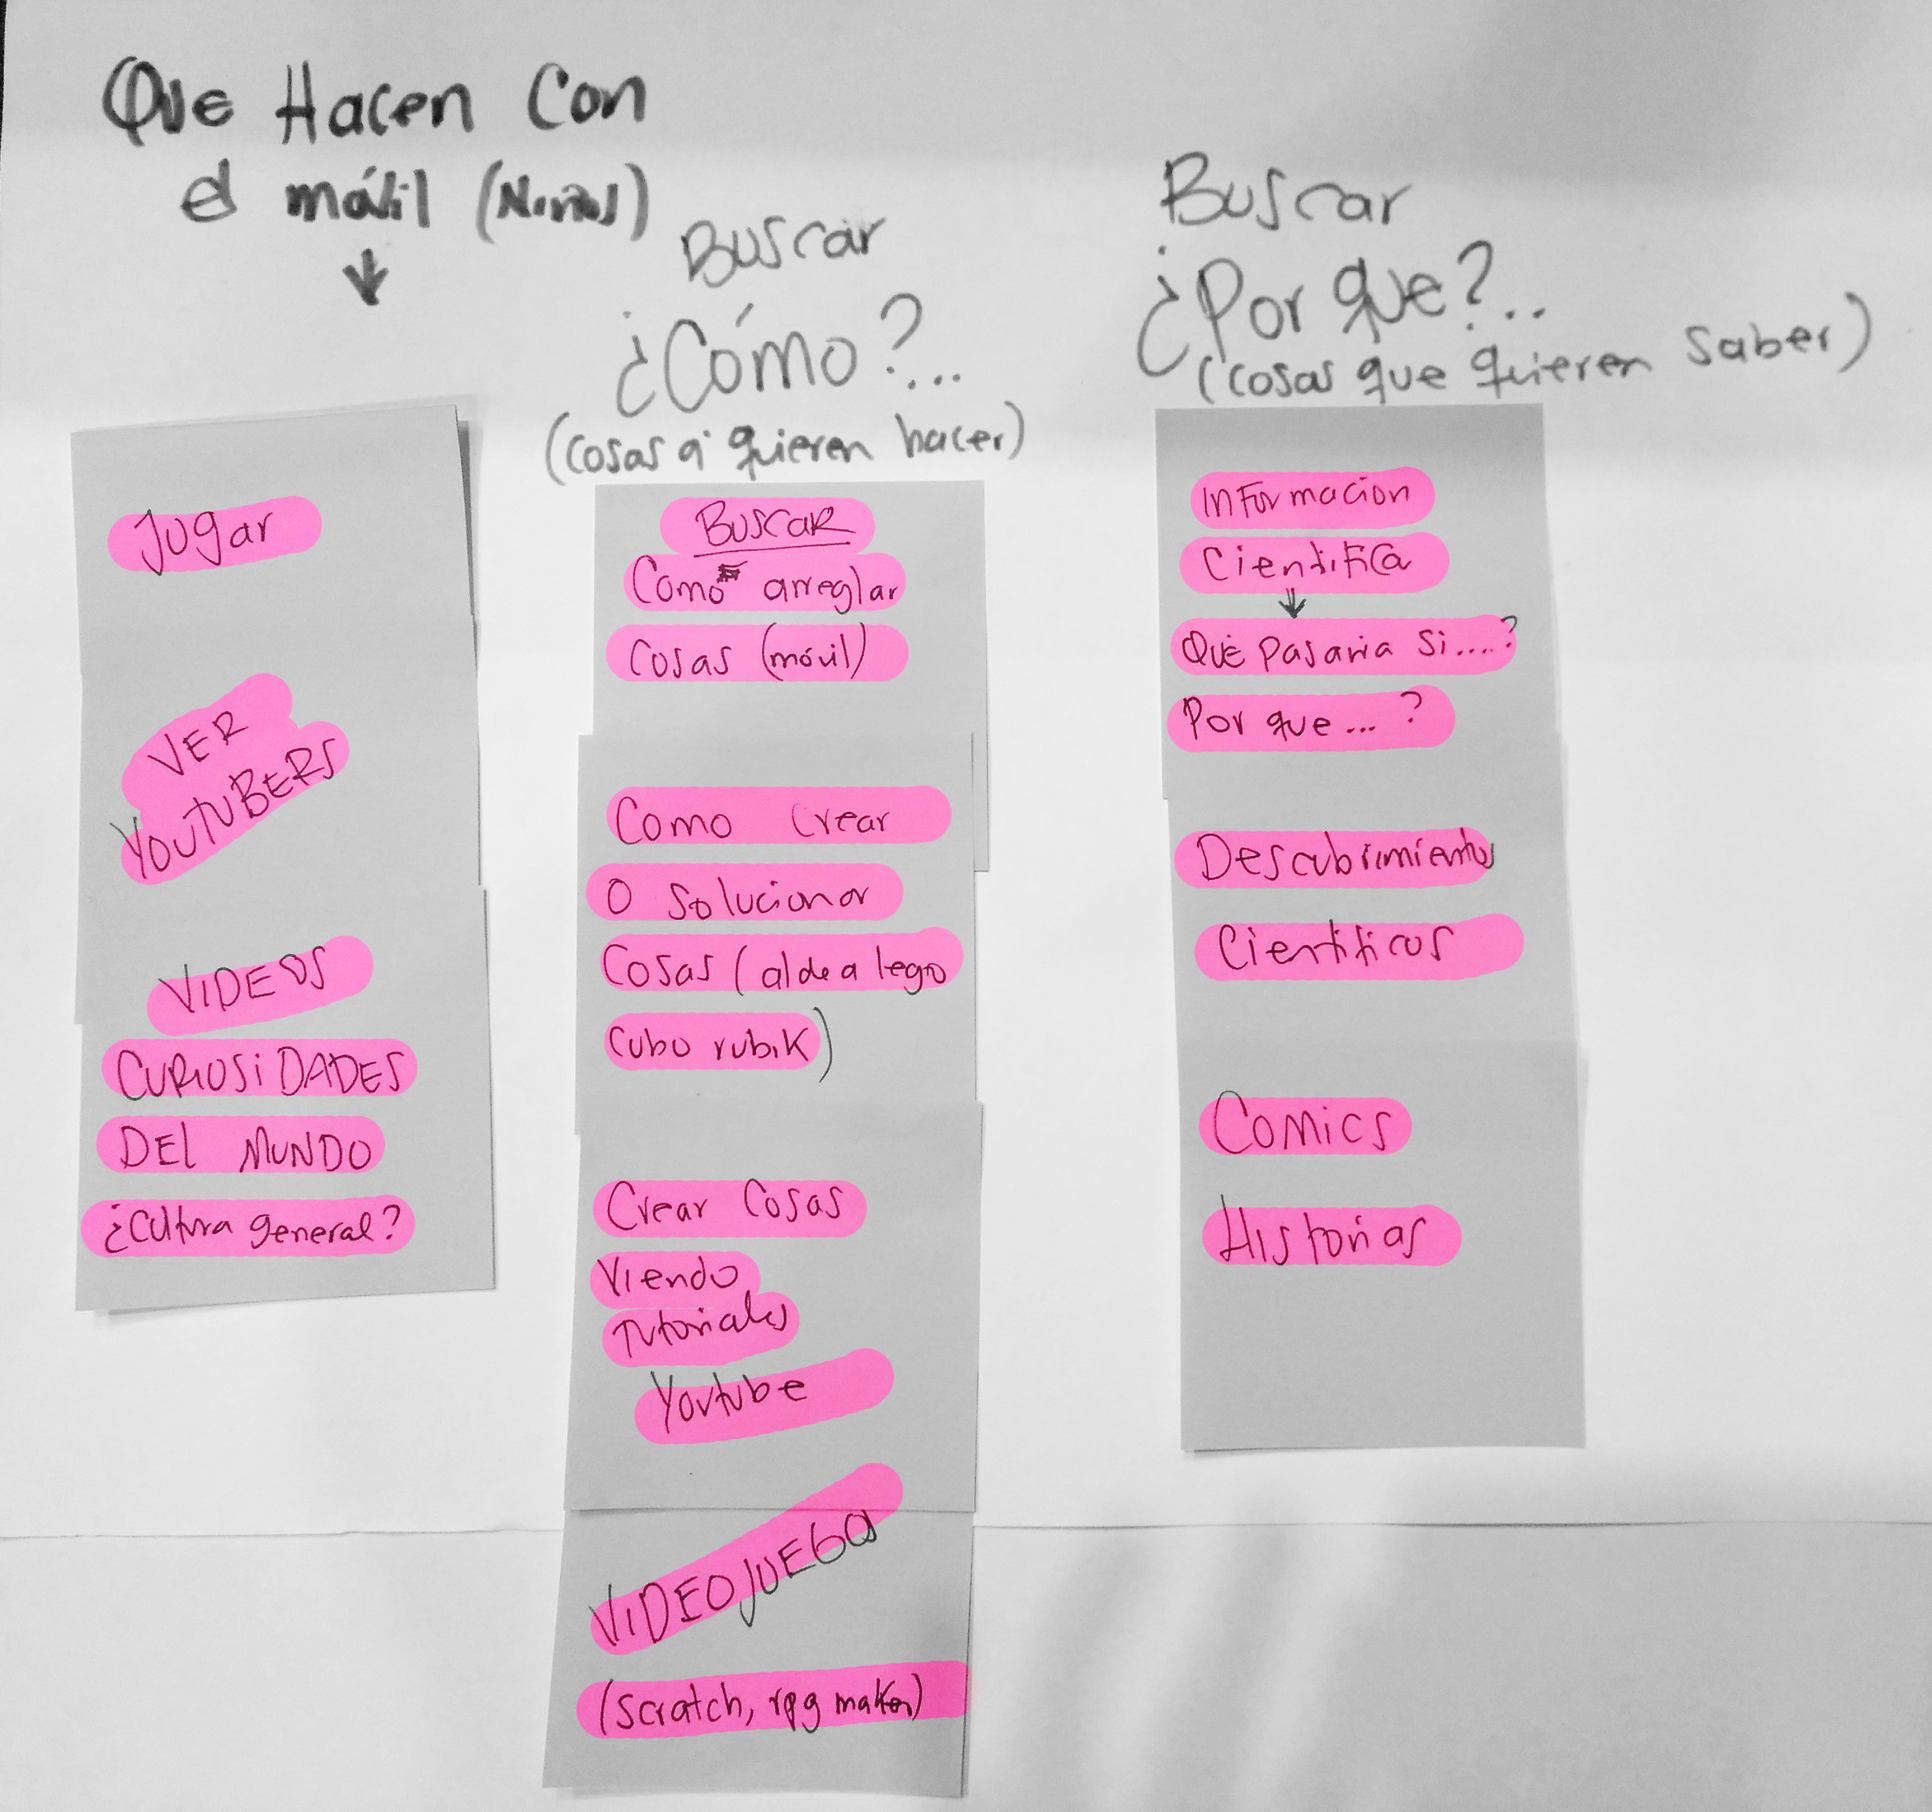 Que Hacen Con
el móvil (Niños)
Jugar
VER
YOUTUBERS
VIDEOS
CURIOSIDADES
DEL MUNDO
¿Cultura general?
Buscar
¿Cómo?...
(cosas q' quieren hacer)
BUSCAR
Como arreglar
Cosas (móvil)
Como Crear
O Solucionar
Cosas (aldea lego
Cubo rubik)
Crear Cosas
Viendo
Tutoriales
Youtube
VIDEOJUEGOS
(scratch, rpg maker)
Buscar
¿Por que?...
(cosas que quieren saber)
Informacion
Cientifica
Que Pasaria Si....?
Por que...?
Descubrimientos
Cientificos
Comics
Historias